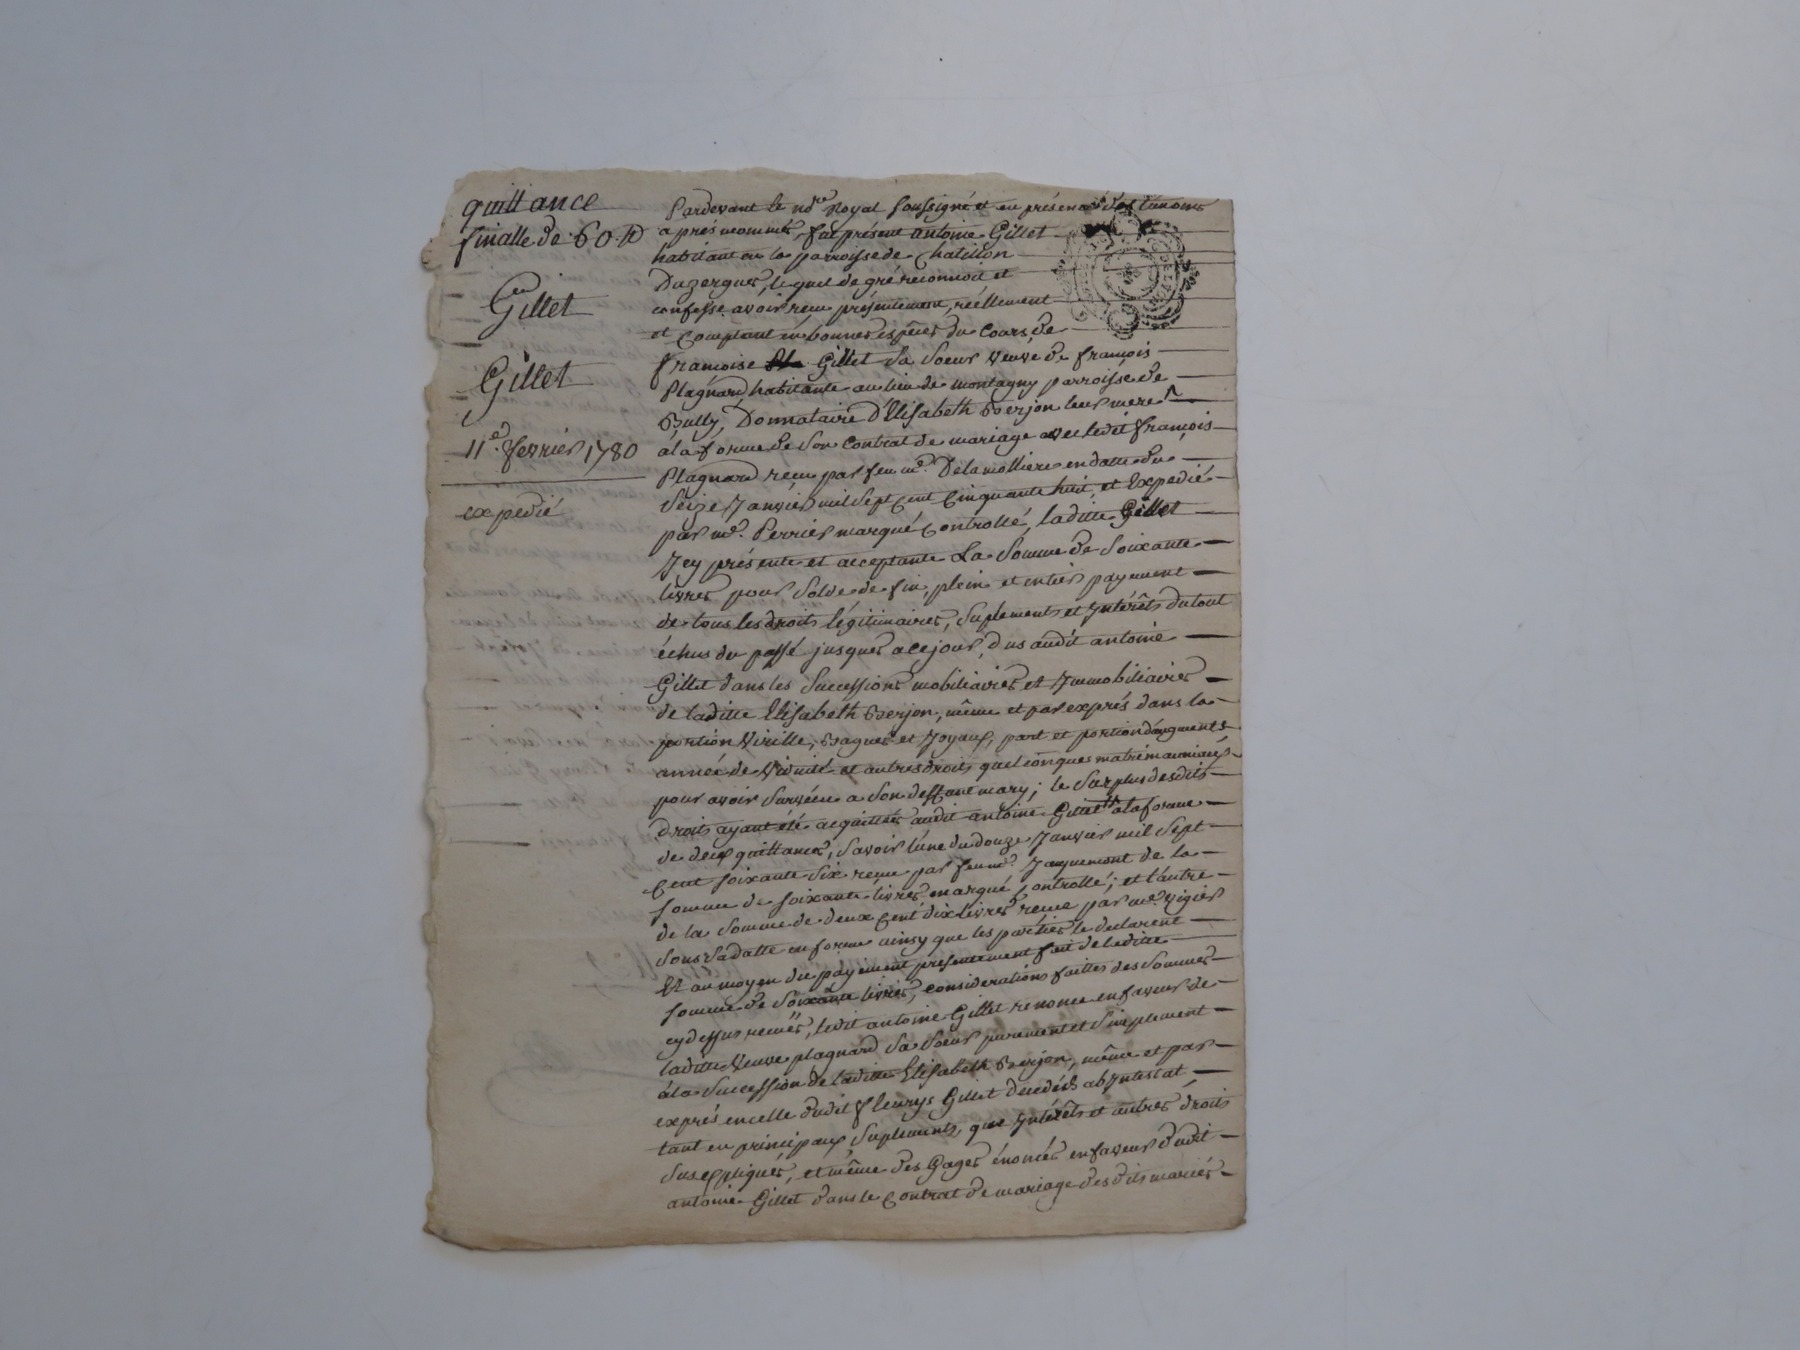 quittance
finalle de 60 ᵗᵗ
Gillet
Gillet
11e. fevrier 1780
expedié
Pardevant le nore Royal soussigné et en présence des témoins
aprés nommés, fut présent antoine Gillet
habitant en la parroisse de chatillon
Dazergues, lequel de gré reconnoit et
confesse avoir reçu présentement, réellement
et comptant en bonnes espèces du Cours, de
françoise Gillet sa soeur veuve de françois
Plagnard, habitante au lieu de montagny parroisse de
Bully, Donnataire d'Elisabeth Berjon leur mere
à la forme de son Contrat de mariage avec ledit françois
Plagnard reçu par feu me. Delamolliere en datte du
Seize Janvier mil sept cent cinquante huit, et Expedié
par me. Perrier marqué Controllé, laditte Gillet
Icy présente et acceptante La Somme de Soixante
livres pour Solde de fin, plein et entier payement
de tous les droits légitimaires, Suplements et Intérêts du tout
échus du passé jusques a ce jour, dus audit antoine
Gillet dans les Successions mobiliaires et Immobiliaires
de laditte Elisabeth Berjon, même et par exprés dans la
portion Virille, Bagues et Joyaux, part et portion daugments
année de Viduité et autres droits quelconques matrémauniaux
pour avoir Survécu a Son deffunt mary; le Surplus desdits
droits ayant été acquittés audit antoine Gillet à la forme
de deux quittances, Savoir l'une du douze Janvier mil Sept
Cent soixante Six reçue par feu me. Jacquemont de la
somme de soixante livres marqué Controllé; et l'autre
de la Somme de deux Cent dix livres reçue par me. Vigier
Sous Sa datte en forme ainsy que les parties le declarent
Et au moyen du payement présentement fait de laditte
somme de Soixante livres, considerations faittes des Sommes
cy dessus reçues, ledit antoine Gillet renonce en faveur de
laditte Veuve plagnard Sa Soeur purement et Simplement
à la Succession de laditte Elisabeth Berjon, même et par
exprés en celle dudit fleurys Gillet decédés abIntestat,
tant en principaux Suplements, que Intérêts et autres droits
Susexpliqués, et même des Gages énoncés en faveur dudit
antoine Gillet dans le Contrat de mariage desdits mariés